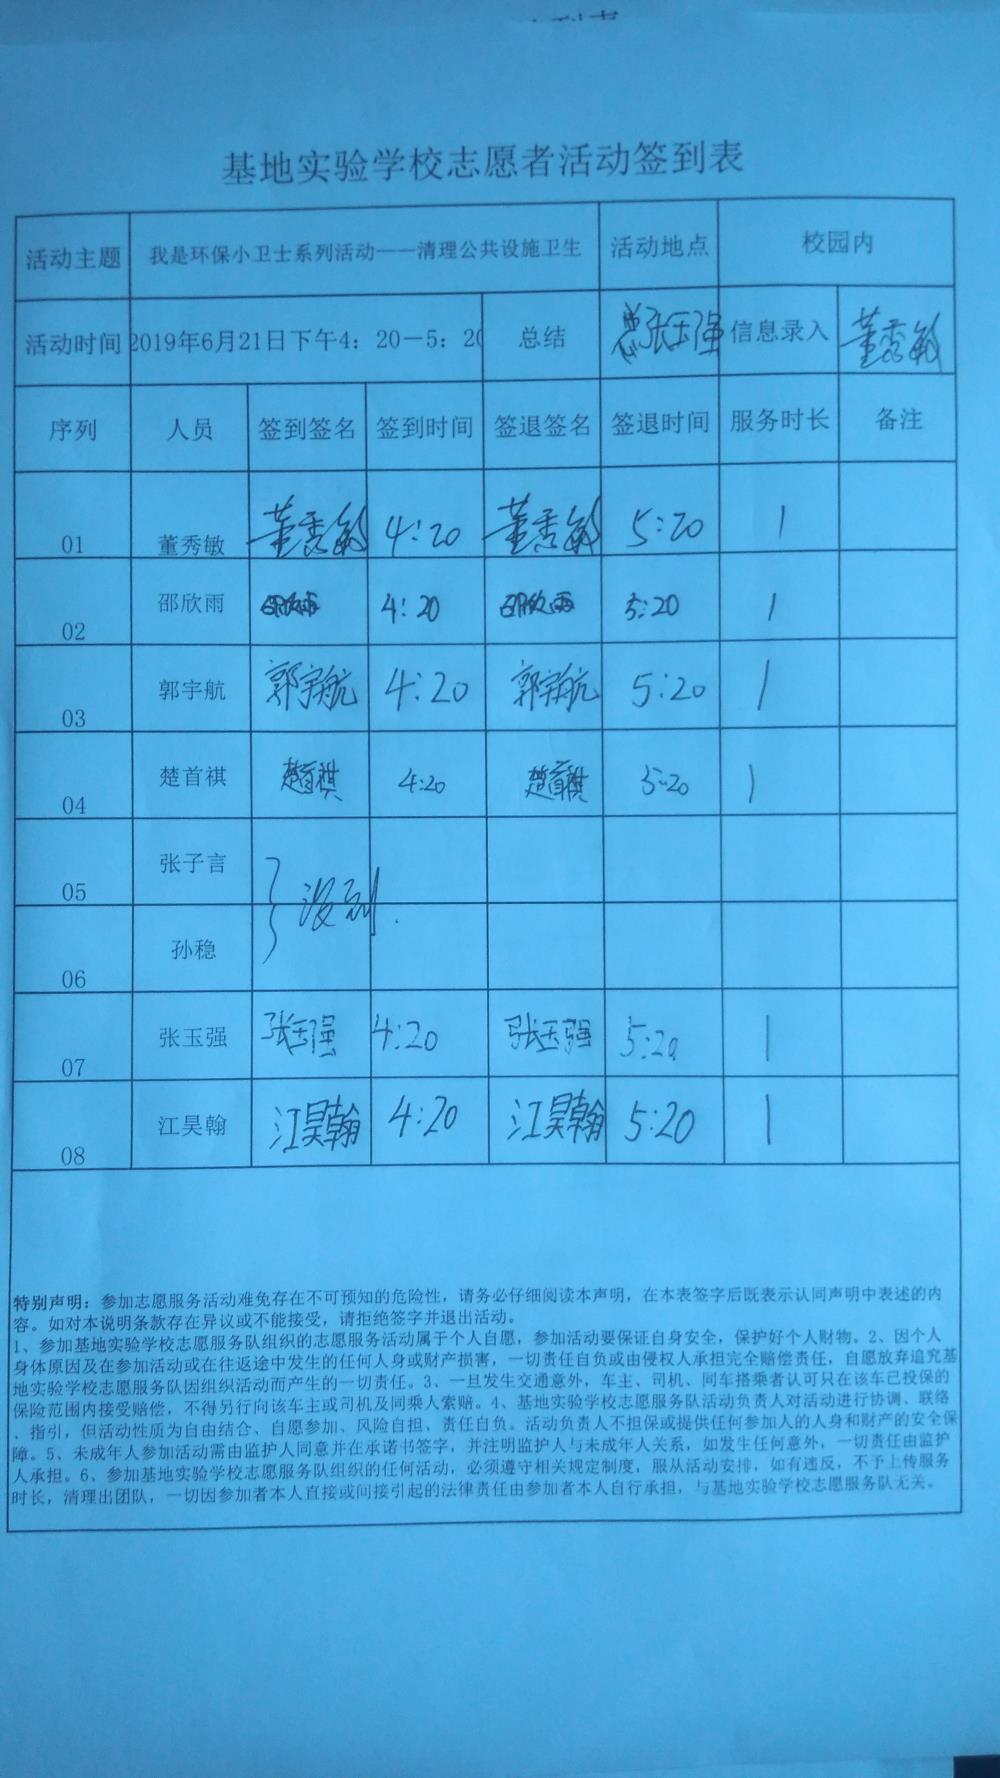 基地实验学校志愿者活动签到表
活动主题 我是环保小卫士系列活动——清理公共设施卫生 活动地点 校园内
活动时间 2019年6月21日下午4：20－5：20 总结 张玉强 信息录入 董秀敏
序列 人员 签到签名 签到时间 签退签名 签退时间 服务时长 备注
01 董秀敏 董秀敏 4:20 董秀敏 5:20 1
02 邵欣雨 邵欣雨 4:20 邵欣雨 5:20 1
03 郭宇航 郭宇航 4:20 郭宇航 5:20 1
04 楚首祺 楚首祺 4:20 楚首祺 5:20 1
05 张子言 没到.
06 孙稳
07 张玉强 张玉强 4:20 张玉强 5:20 1
08 江昊翰 江昊翰 4:20 江昊翰 5:20 1
特别声明：参加志愿服务活动难免存在不可预知的危险性，请务必仔细阅读本声明，在本表签字后既表示认同声明中表述的内
容。如对本说明条款存在异议或不能接受，请拒绝签字并退出活动。
1、参加基地实验学校志愿服务队组织的志愿服务活动属于个人自愿，参加活动要保证自身安全，保护好个人财物。2、因个人
身体原因及在参加活动或在往返途中发生的任何人身或财产损害，一切责任自负或由侵权人承担完全赔偿责任，自愿放弃追究基
地实验学校志愿服务队因组织活动而产生的一切责任。3、一旦发生交通意外，车主、司机、同车搭乘者认可只在该车已投保的
保险范围内接受赔偿，不得另行向该车主或司机及同乘人索赔。4、基地实验学校志愿服务队活动负责人对活动进行协调、联络
、指引，但活动性质为自由结合、自愿参加、风险自担、责任自负。活动负责人不担保或提供任何参加人的人身和财产的安全保
障。5、未成年人参加活动需由监护人同意并在承诺书签字，并注明监护人与未成年人关系，如发生任何意外，一切责任由监护
人承担。6、参加基地实验学校志愿服务队组织的任何活动，必须遵守相关规定制度，服从活动安排，如有违反，不予上传服务
时长，清理出团队，一切因参加者本人直接或间接引起的法律责任由参加者本人自行承担，与基地实验学校志愿服务队无关。